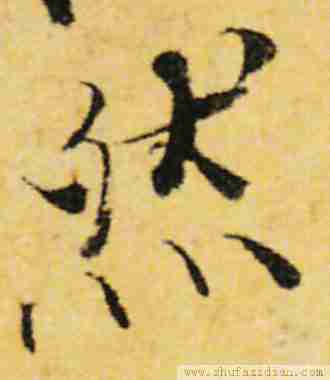 然
www.shufazidian.com